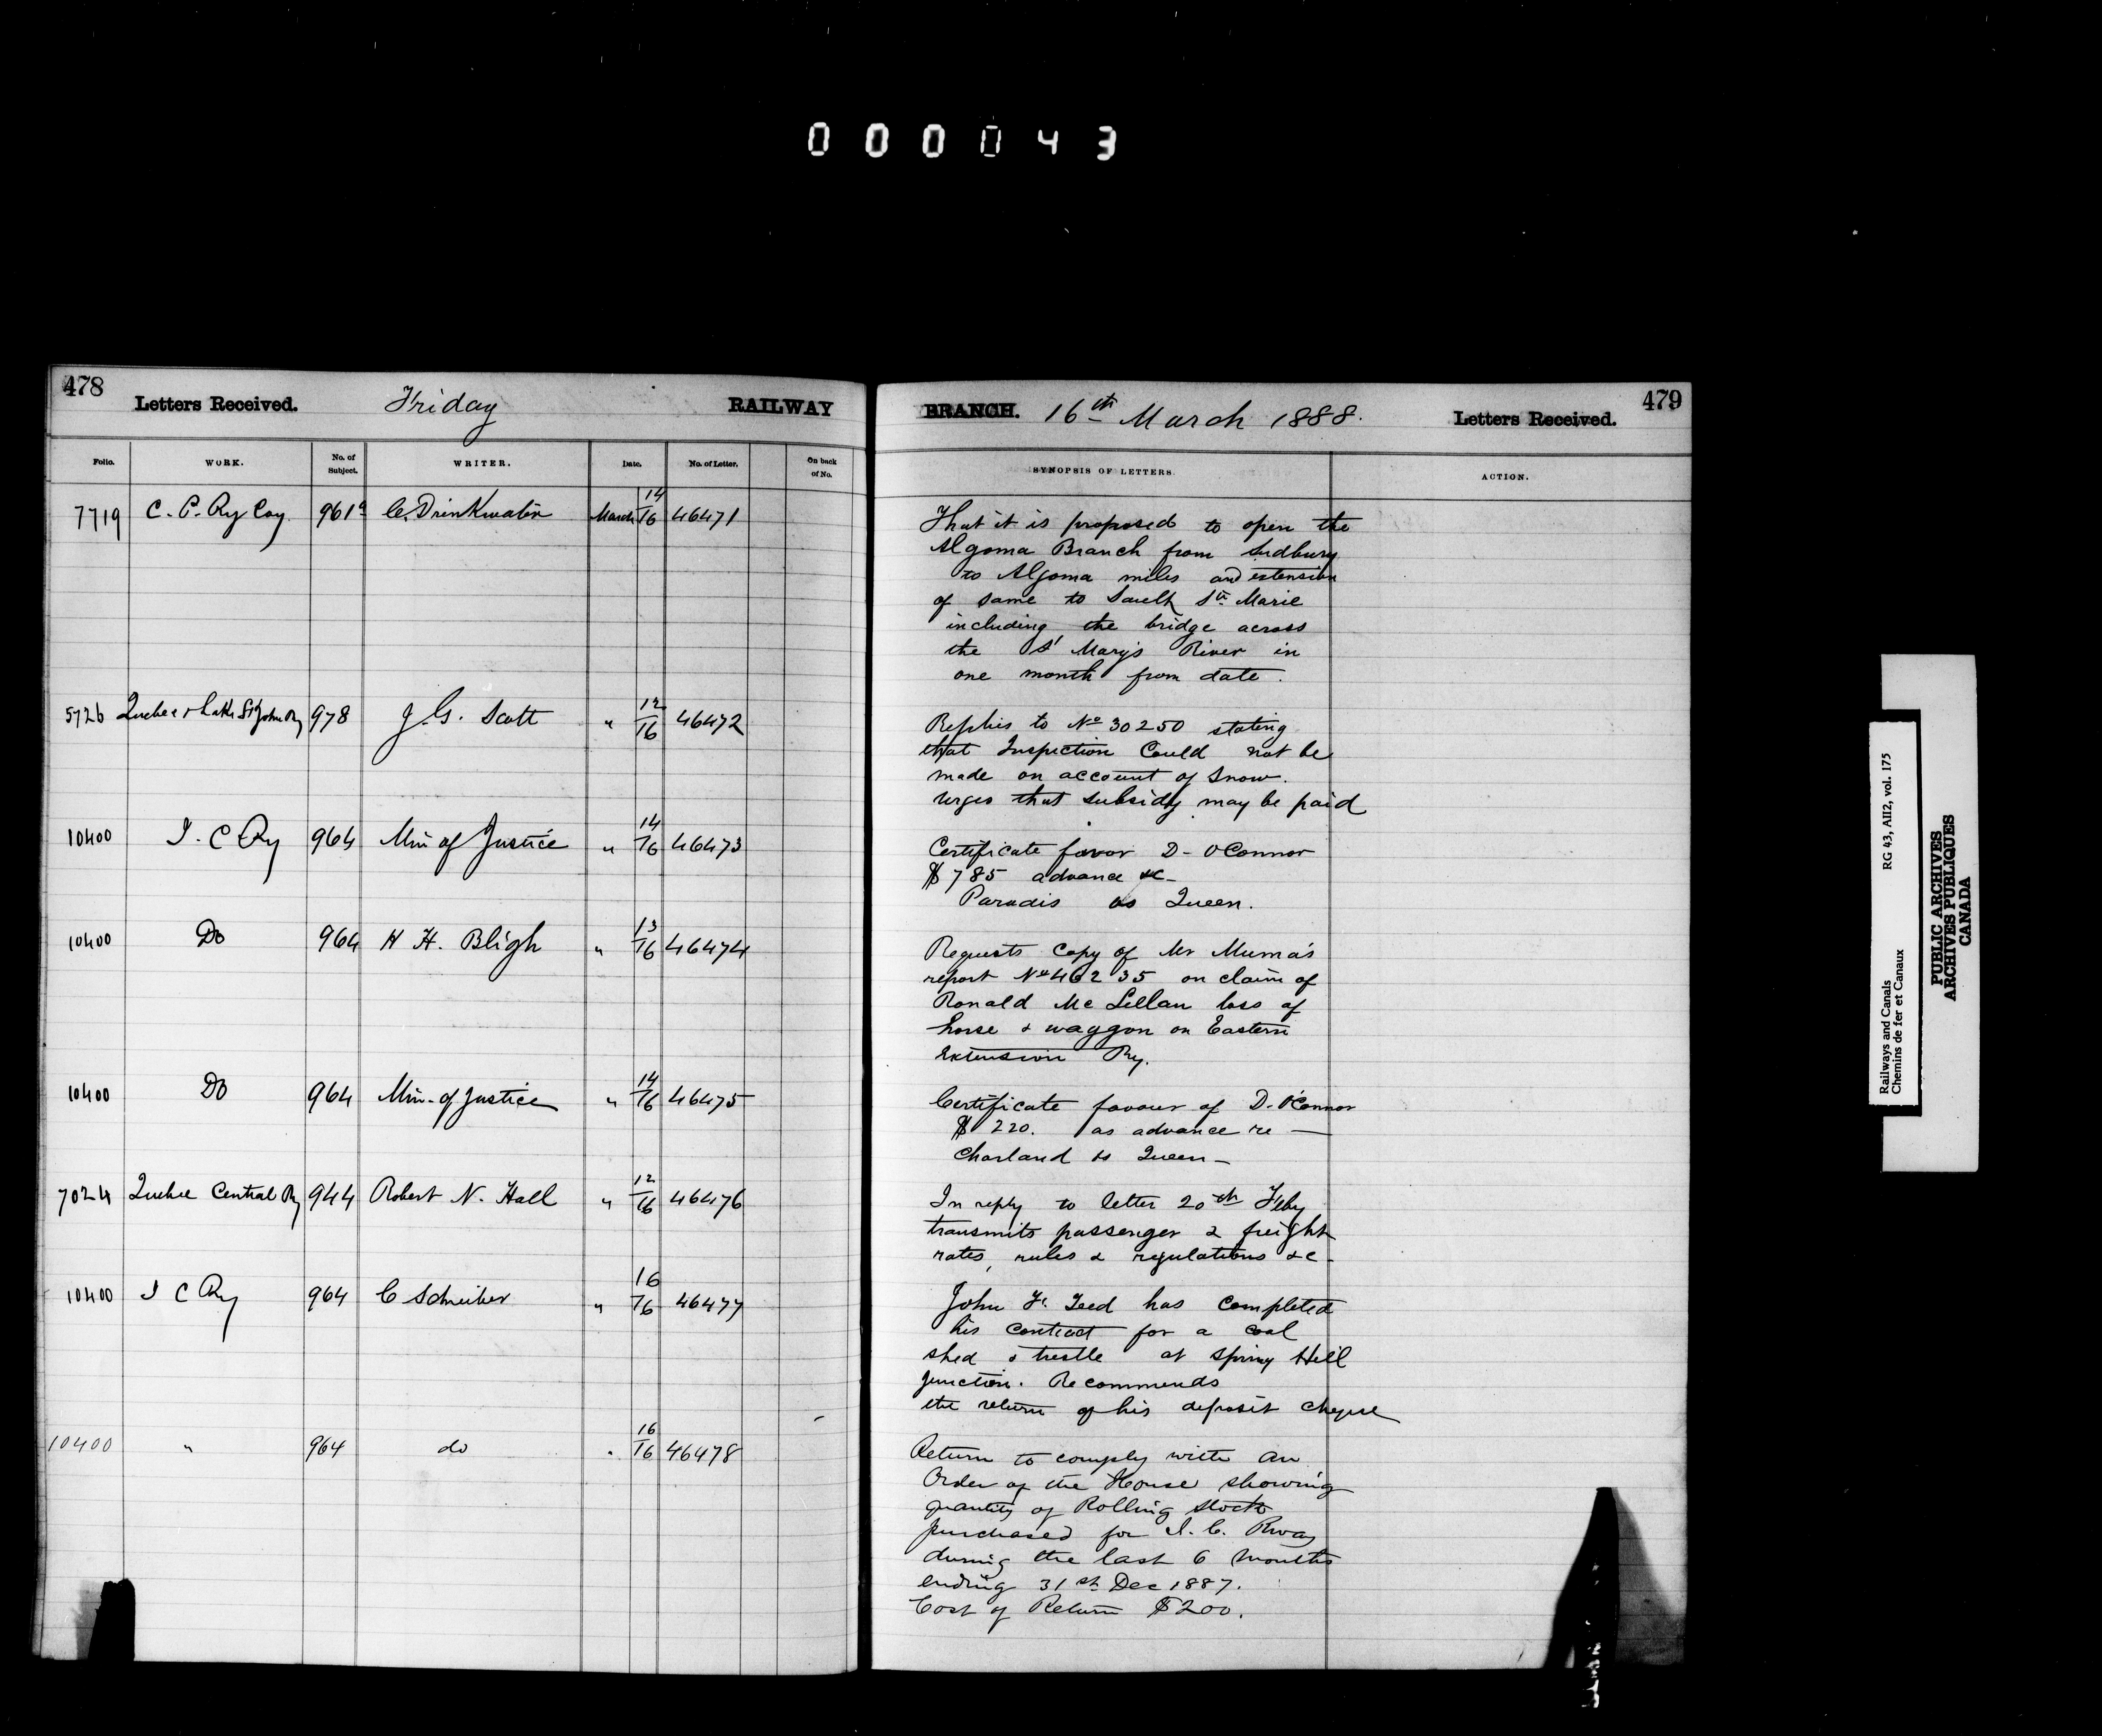 000043
478
Letters Received.
Friday
RAILWAY
Folio.
WORK.
No. of Subject.
WRITER.
Date.
No. of Letter.
On back of No.
7719 C. P. Ry Coy 961a C. Drinkwater March 14/16 46471
5726 Quebec & Lake St John Ry 978 J. G. Scott " 12/16 46472
10400 I. C Ry 964 Min of Justice " 14/16 46473
10400 Do 964 H H. Bligh " 13/16 46474
10400 Do 964 Min. of Justice " 14/16 46475
7024 Quebec Central Ry 944 Robert N. Hall " 12/16 46476
10400 I C Ry 964 C Schreiber " 16/16 46477
10400 " 964 do " 16/16 46478
BRANCH.
16th March 1888.
Letters Received.
479
SYNOPSIS OF LETTERS
ACTION.
That it is proposed to open the
Algoma Branch from Sudbury
to Algoma miles and extension
of same to Sault Ste Marie
including the bridge across
the St Mary's River in
one month from date.
Replies to No 30250 stating
that Inspection Could not be
made on account of Snow.
Urges that subsidy may be paid
Certificate favor D- O'Connor
$785 advance &c-
Paradis vs Queen.
Requests copy of Mr Muma's
report No 46235 on claim of
Ronald Mc Lellan loss of
horse & waggon on Eastern
Extension Ry.
Certificate favour of D. O'Connor
$ 220. as advance re —
Charland vs Queen-
In reply to letter 20th Feby
transmits passenger & freight
rates, rules & regulations &c-
John F. Teed has completed
his contract for a coal
shed & trestle at Spring Hill
Junction. Recommends
the return of his deposit cheque
Return to comply with an
Order of the House showing
quantity of Rolling stock
purchased for I. C. Rway
during the last 6 months
ending 31st Dec 1887.
Cost of Return $200.
Railways and Canals RG 43, AII2, vol. 175
Chemins de fer et Canaux
PUBLIC ARCHIVES
ARCHIVES PUBLIQUES
CANADA